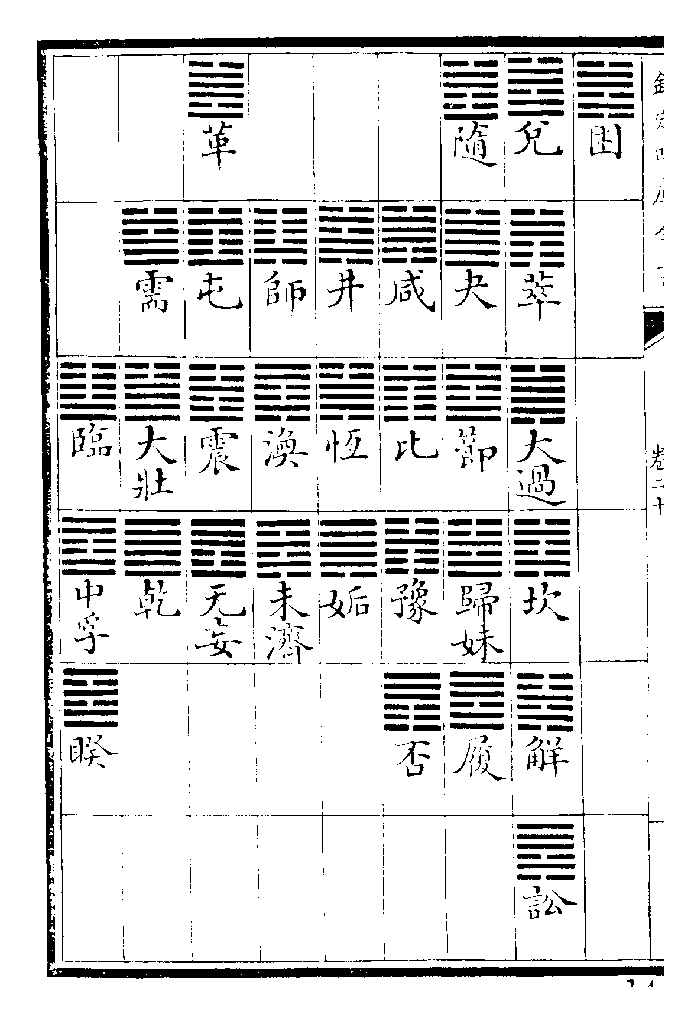 欽定四庫全書
卷二十
困
兌 萃 大過 坎 解 訟
隨 夬 節 歸妹 履
咸 比 豫 否
井 恆 姤
師 渙 未濟
革 屯 震 无妄
需 大壯 乾
臨 中孚 睽